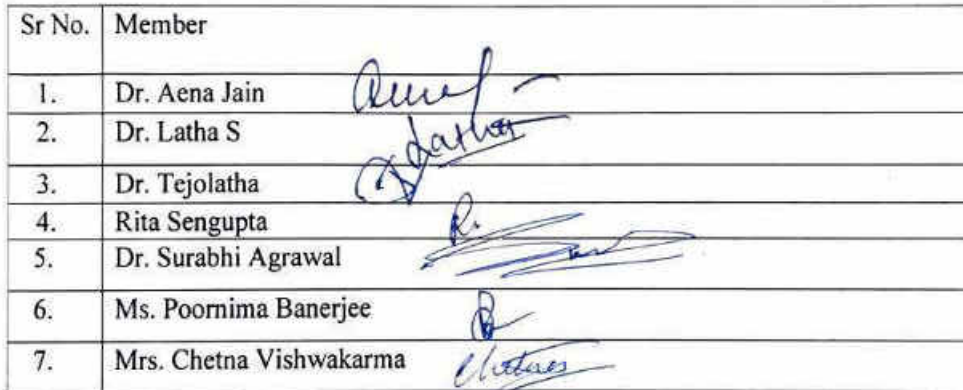 Sr No. Member
1. Dr. Aena Jain
2. Dr. Latha S Latha
3. Dr. Tejolatha
4. Rita Sengupta
5. Dr. Surabhi Agrawal
6. Ms. Poornima Banerjee
7. Mrs. Chetna Vishwakarma